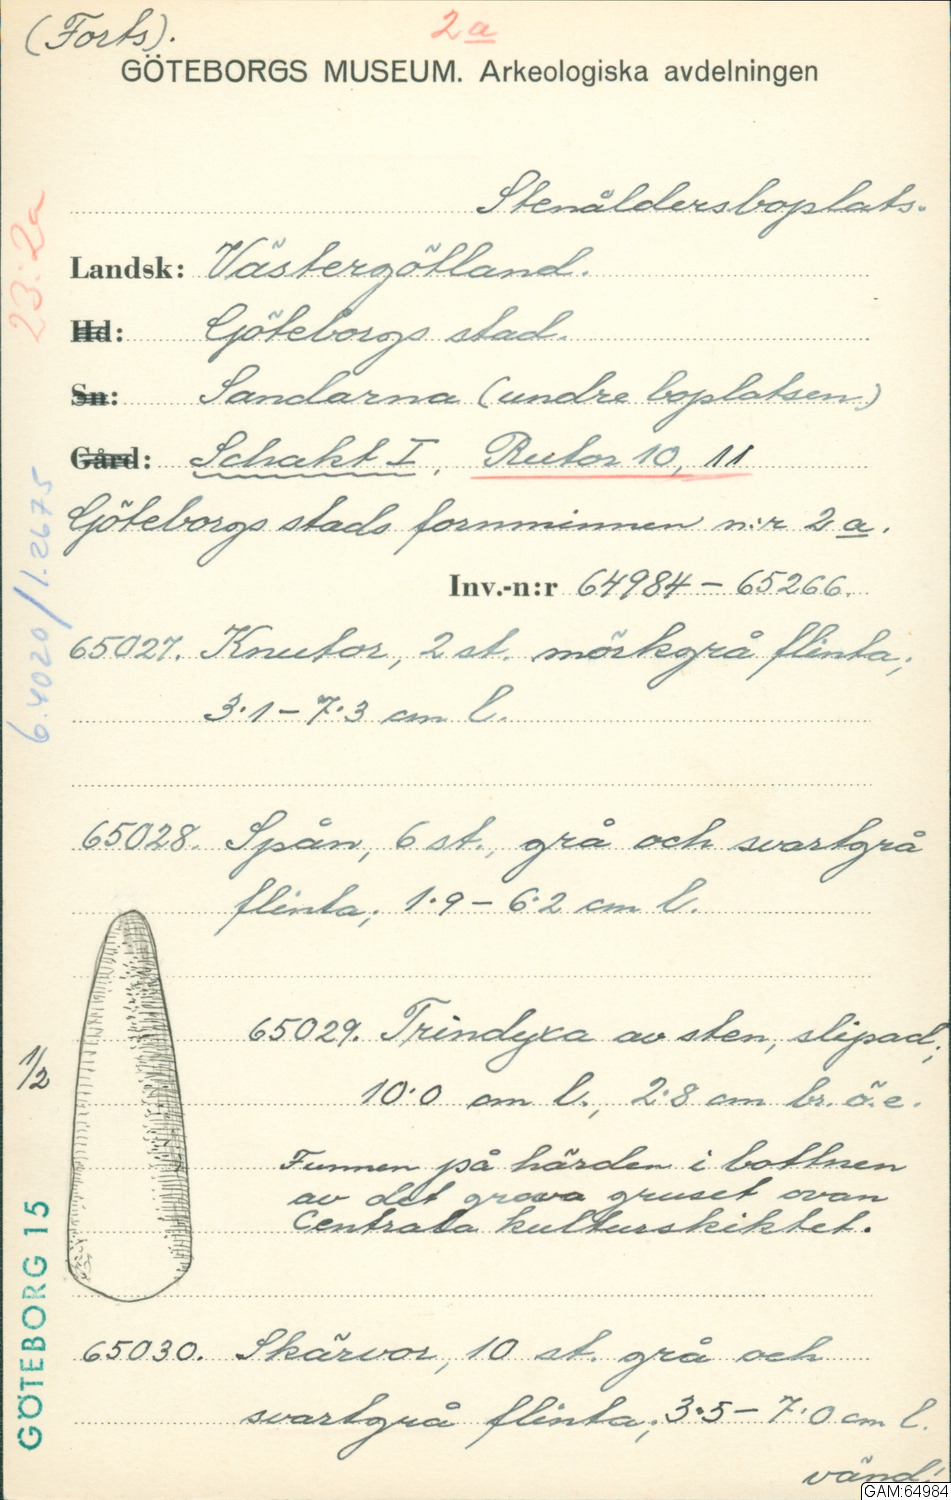 (Forts).
2a
GÖTEBORGS MUSEUM. Arkeologiska avdelningen
Stenåldersboplats.
Landsk: Västergötland.
Hd: Göteborgs stad.
Sn: Sandarna (undre boplatsen)
Gård: Schakt I, Rutor 10, 11
Göteborgs stads fornminnen n:r 2a.
Inv.-n:r 64984 – 65266.
65027. Knutor, 2 st. mörkgrå flinta;
3·1 – 7·3 cm l.
65028. Spån, 6 st., grå och svartgrå
flinta; 1·9 – 6·2 cm l.
65029. Trindyxa av sten, slipad;
10·0 cm l., 2·8 cm br. ö. e.
Funnen på härden i bottnen
av det grova gruset ovan
Centrala kulturskiktet.
65030. Skärvor, 10 st. grå och
svartgrå flinta; 3·5 – 7·0 cm l.
vänd!
23:2a
6.4020/1.2675
1/2
GÖTEBORG 15
GAM:64984